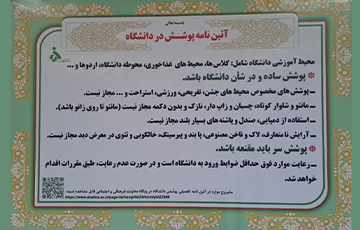 باسمه تعالی
آئین نامه پوشش در دانشگاه
محیط آموزشی دانشگاه شامل: کلاس ها، محیط های غذاخوری، محوطه دانشگاه، اردوها و ...
پوشش ساده و در شأن دانشگاه باشد.
ـ پوشش های مخصوص محیط های جشن، تفریحی، ورزشی، استراحت و ... مجاز نیست.
ـ مانتو و شلوار کوتاه، چسبان و زاپ دار، نازک و بدون دکمه مجاز نیست (مانتو تا روی زانو باشد).
ـ استفاده از دمپایی، صندل و پاشنه های بسیار بلند مجاز نیست.
ـ آرایش نامتعارف، لاک و ناخن مصنوعی، پابند و پیرسینگ، خالکوبی و تتوی در معرض دید مجاز نیست.
پوشش سر باید مقنعه باشد.
ـ رعایت موارد فوق حداقل ضوابط ورود به دانشگاه است و در صورت عدم رعایت، طبق مقررات اقدام
خواهد شد.
مشروح موارد در آئین نامه تفصیلی پوشش دانشگاه در وبگاه معاونت فرهنگی و اجتماعی قابل مشاهده است: